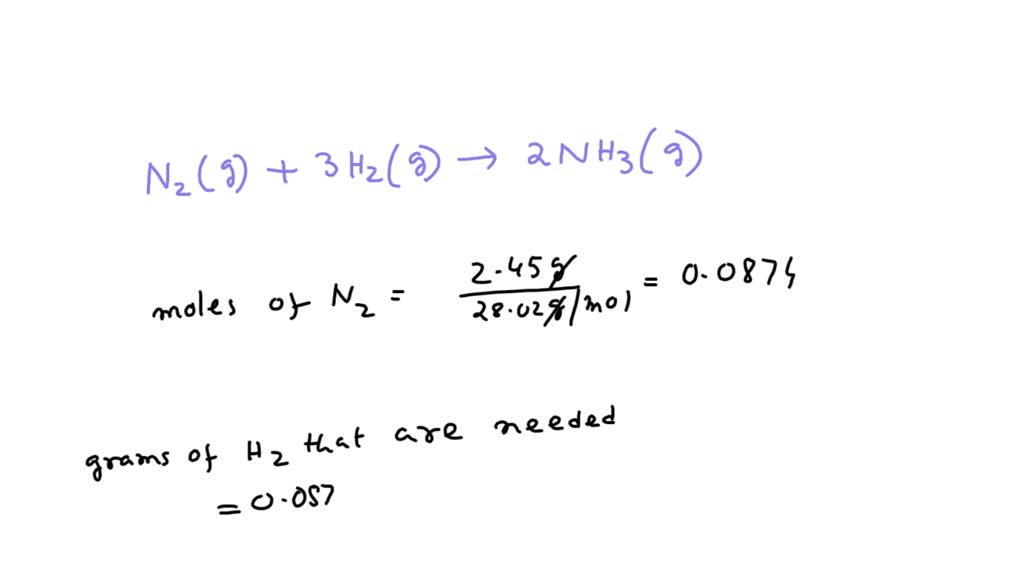 N₂(g) + 3H₂(g) → 2NH₃(g)
moles of N₂ = 2.45g / 28.02g/mol = 0.0874
grams of H₂ that are needed
= 0.057